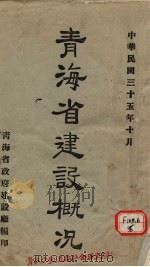 中華民國三十五年十月
青海省建設概况
青海省政府建設廳編印